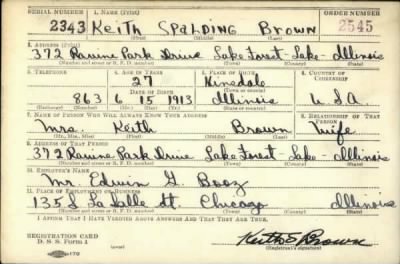 SERIAL NUMBER 1. NAME (Print) ORDER NUMBER
2343 KEITH SPALDING BROWN 2545
(First) (Middle) (Last)
2. ADDRESS (Print)
372 Ravine Park Drive Lake Forest - Lake - Illinois
(Number and street or R. F. D. number) (Town) (County) (State)
3. TELEPHONE 4. AGE IN YEARS 5. PLACE OF BIRTH 6. COUNTRY OF CITIZENSHIP
27 Hinsdale
DATE OF BIRTH (Town or county)
863 6 15 1913 Illinois USA
(Exchange) (Number) (Mo.) (Day) (Yr.) (State or country)
7. NAME OF PERSON WHO WILL ALWAYS KNOW YOUR ADDRESS 8. RELATIONSHIP OF THAT PERSON
Mrs. Keith Brown Wife
(Mr., Mrs., Miss) (First) (Middle) (Last)
9. ADDRESS OF THAT PERSON
372 Ravine Park Drive Lake Forest - Lake - Illinois
(Number and street or R. F. D. number) (Town) (County) (State)
10. EMPLOYER'S NAME
Mr. Edwin G. Booz
11. PLACE OF EMPLOYMENT OR BUSINESS
135 S La Salle St. Chicago Illinois
(Number and street or R. F. D. number) (Town) (County) (State)
I AFFIRM THAT I HAVE VERIFIED ABOVE ANSWERS AND THAT THEY ARE TRUE.
REGISTRATION CARD
D. S. S. Form 1 Keith S Brown
(Registrant's signature)